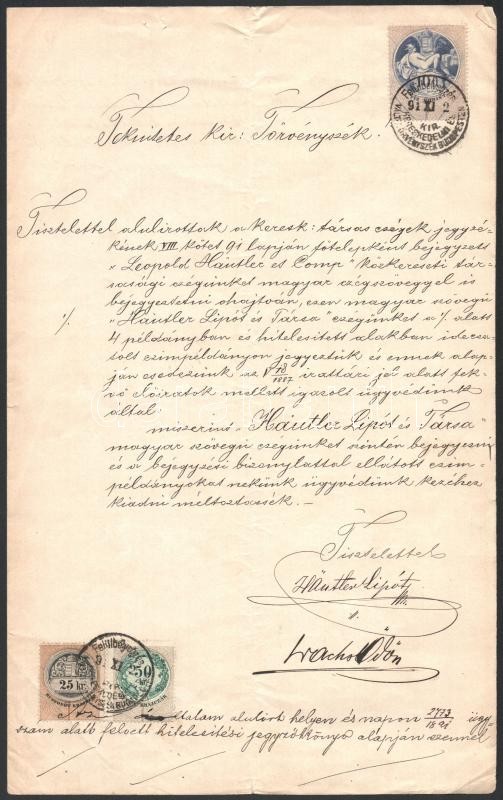 Felülbélyegezve
91 XI 2
KIR.
KERESKEDELMI ÉS VÁLTÓ TÖRVÉNYSZÉK BUDAPESTEN
Tekintetes kir: Törvényszék.
Tisztelettel alulirottak a keresk: társas czégek jegyzé-
kének VIII kötet 91 lapján főtelepként bejegyzett
"Leopold Häutler et Comp" közkereseti tár-
sasági czégünket magyar czégszöveggel is
bejegyeztetni óhajtván, ezen magyar szövegü
"Häutler Lipót és Társa" czégünket a ·/. alatt
·/.
4 példányban és hitelesitett alakban idecsa-
tolt czimpéldányon jegyeztük és ennek alap-
ján esedezünk az 1887 irattári jel alatt fek-
vő előiratok mellett igazolt ügyvédünk
által:
miszerint "Häutler Lipót és Társa"
magyar szövegü czégünket szintén bejegyezni
és a bejegyzési bizonylattal ellátott czim-
példányokat nekünk ügyvédünk kezéhez
kiadni méltóztassék. —
Tisztelettel
Häutler Lipót
Ödön
Felülbélyegezve
91 XI
25 kr.
50
alulirt helyen és napon 2773/1891 ügy-
szám alatt felvett hitelesitési jegyzőkönyv alapján ezennel